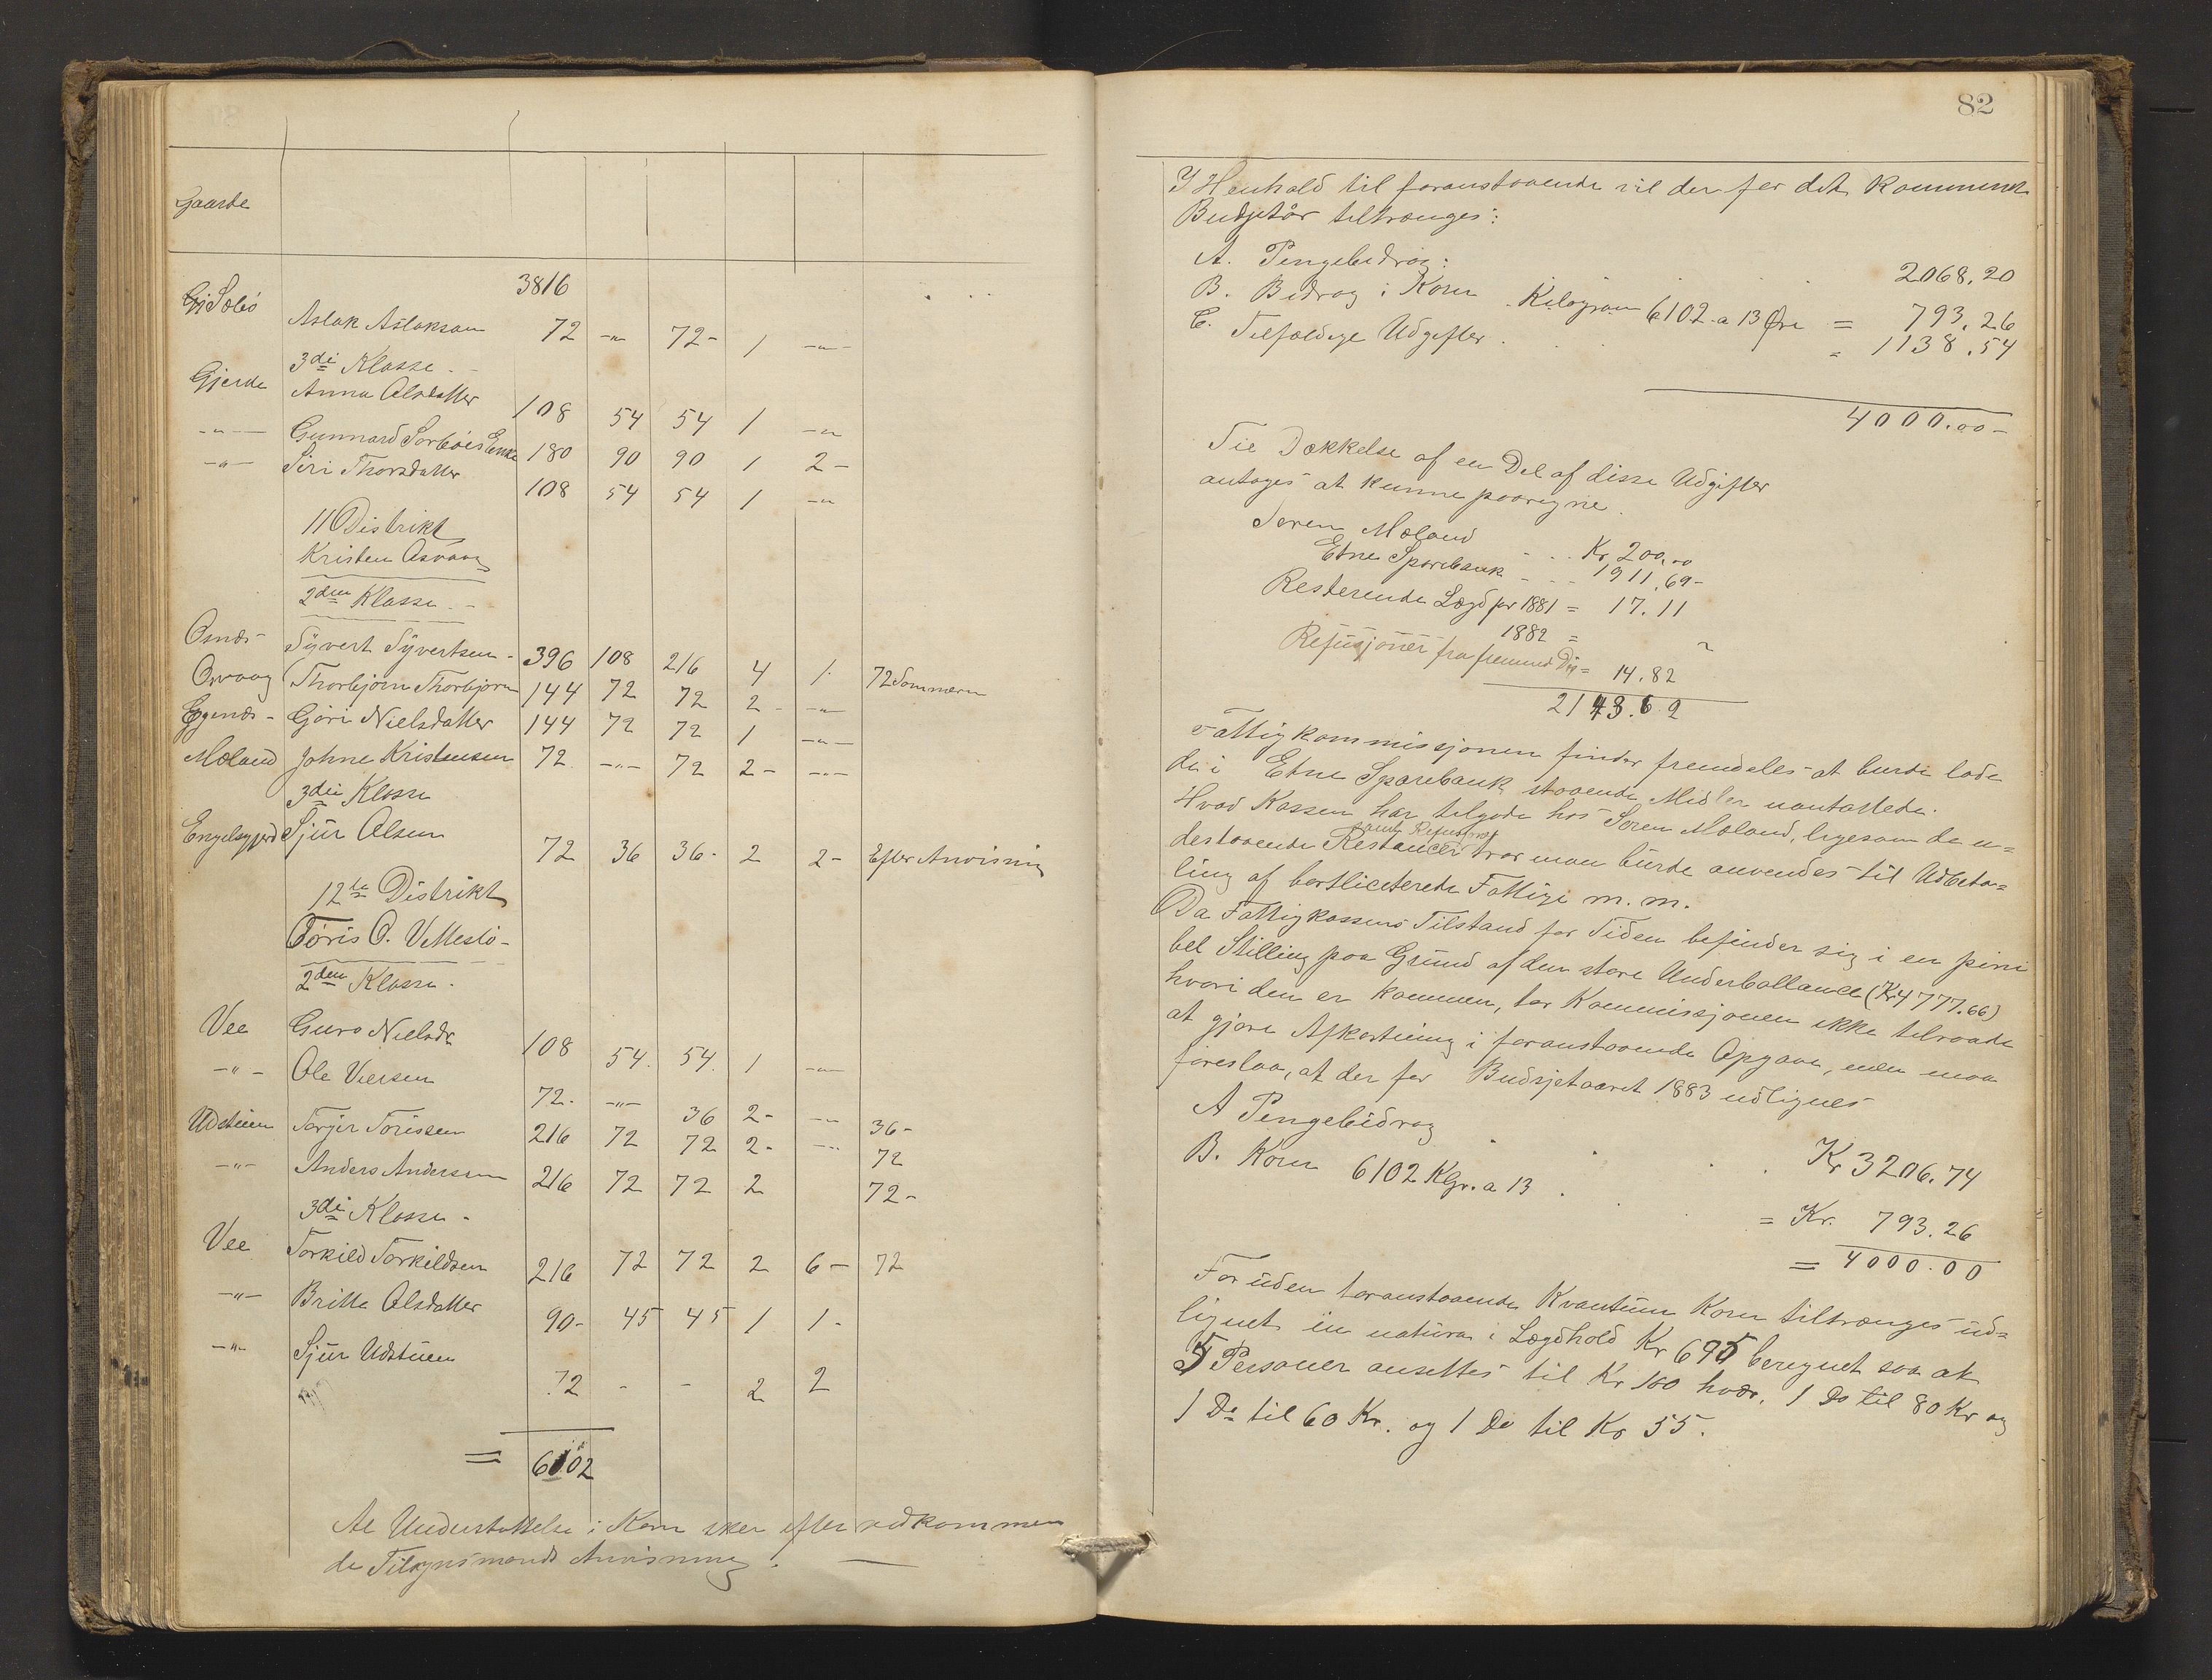 Gaarde
3816
Sæbö Aslak Aslaksen 72 -"- 72- 1 -"-
3die Klasse
Gjerde Anna Olsdatter 108 54 54 1 -"-
-"- Gunnard Sørbøes Enke 180 90 90 1 2-
-"- Siri Thorsdatter 108 54 54 1 -"-
11 Distrikt
Kristen Osvaag
2den Klasse
Osnes Syvert Syvertsen - 396 108 216 4 1. 72 Sommeren
Osvaag Thorbjørn Thorbjørn 144 72 72 2- -"-
Egenes- Göri Nielsdatter 144 72 72 1 -"-
Mæland Johne Kristensen 72 -"- 72 2- -"-
3die Klasse
Engelsgjerd Sjur Olsen 72 36 36- 2 2- Efter Anvisning
12te Distrikt
Tøris O. Vettesbö-
2den Klasse.
Vee Guro Nielsdr 108 54. 54. 1 -"-
-"- Ole Veersen 72- -"- 36 2- -"- 36-
Udstuen Torger Torissen 216 72 72 2- -"- 72
-"- Anders Andersen 216 72 72 2 72-
3die Klasse-
Vee Torkild Torkildsen 216 72 72 2 6- 72
-"- Britta Olsdatter 90- 45 45 1 1-
-"- Sjur Udstuen 72 - - 2 2
= 6102
Al Understøttelse i Korn sker efter vedkommen
de Tilsynsmands Anvisning.
82
I Henhold til foranstaaende vil der for det kommende
Budgetår tiltrænges:
A. Pengebidrag: 2068,20
B. Bidrag i Korn Kilogram 6102 a 13 Øre = 793,26
C. Tilfældige Udgifter . . . = 1138,54
4000.00-
Til Dækkelse af en Del af disse Udgifter
antages at kunne paaregne.
Søren Mæland - - . Kr 200,00
Etne Sparebank - - - 1911,69-
Resterende Lægd for 1881 = 17.11
1882 = "
Refusjoner fra fremmed Dis = 14.82
2143.62
Fattigkommissjonen finder fremdeles at burde lade
de i Etne Sparebank staaende Midler uantastede.
Hvad Kassen har tilgode hos Søren Mæland, ligesom de u=
destaaende Restancer samt Refusjoner tror man burde anvendes til Udbeta=
ling af bortliciterede Fattige m. m.
Da Fattigkassens Tilstand for Tiden befinder sig i en pini
bel Stilling paa Grund af den store Underballance (Kr 4777.66)
hvori den er kommen, tør Kommissjonen ikke tilraade
at gjøre Afkortning i foranstaaende Opgave, men maa
foreslaa, at der for Budsjetaaret 1883 udlignes
A Pengebidrag . . . Kr 3206.74
B. Korn 6102 Kgr. a 13 . . = Kr. 793.26
= 4000.00
Foruden foranstaaende Kvantum Korn tiltrænges ud=
lignet in natura i Lægdhold Kr 695 beregnet saa at
5 Personer ansettes til Kr 100 hver, 1 Do til 80 Kr og
1 Do til 60 Kr. og 1 Do til Kr 55.